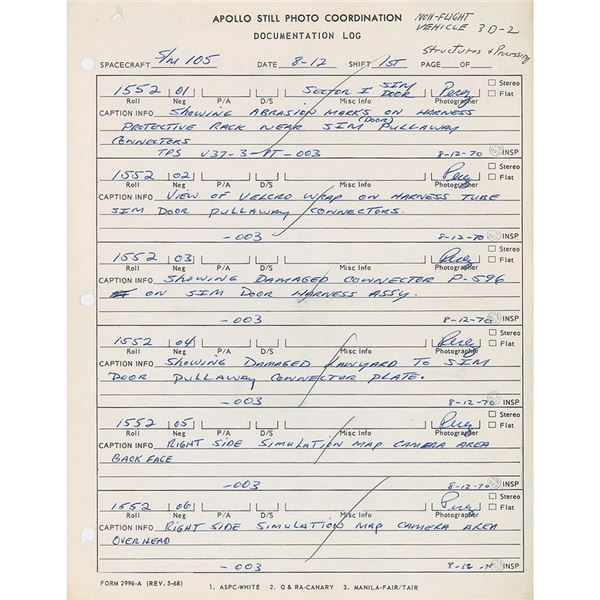 APOLLO STILL PHOTO COORDINATION
NON-FLIGHT
VEHICLE 3D-2
DOCUMENTATION LOG
Structures & Processing
SPACECRAFT S/M 105 DATE 8-12 SHIFT 1ST PAGE OF
1552 01 SECTOR I SIM DOOR Perez Stereo
Roll Neg P/A D/S Misc Info Photographer Flat
CAPTION INFO SHOWING ABRASION MARKS ON HARNESS
PROTECTIVE RACK NEAR SIM (DOOR) PULLAWAY
CONNECTORS
TPS V37-3-PT-003 8-12-70 INSP
1552 02 Perez Stereo
Roll Neg P/A D/S Misc Info Photographer Flat
CAPTION INFO VIEW OF VELCRO WRAP ON HARNESS TUBE
SIM DOOR PULLAWAY CONNECTORS.
-003 8-12-70 INSP
1552 03 Perez Stereo
Roll Neg P/A D/S Misc Info Photographer Flat
CAPTION INFO SHOWING DAMAGED CONNECTOR P-596
ON SIM DOOR HARNESS ASSY.
-003 8-12-70 INSP
1552 04 Perez Stereo
Roll Neg P/A D/S Misc Info Photographer Flat
CAPTION INFO SHOWING DAMAGED LANYARD TO SIM
DOOR PULLAWAY CONNECTOR PLATE.
-003 8-12-70 INSP
1552 05 Perez Stereo
Roll Neg P/A D/S Misc Info Photographer Flat
CAPTION INFO RIGHT SIDE SIMULATION MAP CAMERA AREA
BACK FACE
-003 8-12-70 INSP
1552 06 Perez Stereo
Roll Neg P/A D/S Misc Info Photographer Flat
CAPTION INFO RIGHT SIDE SIMULATION MAP CAMERA AREA
OVERHEAD
-003 8-12-70 INSP
FORM 2996-A (REV. 5-68) 1. ASPC-WHITE 2. Q & RA-CANARY 3. MANILA-FAIR/TAIR